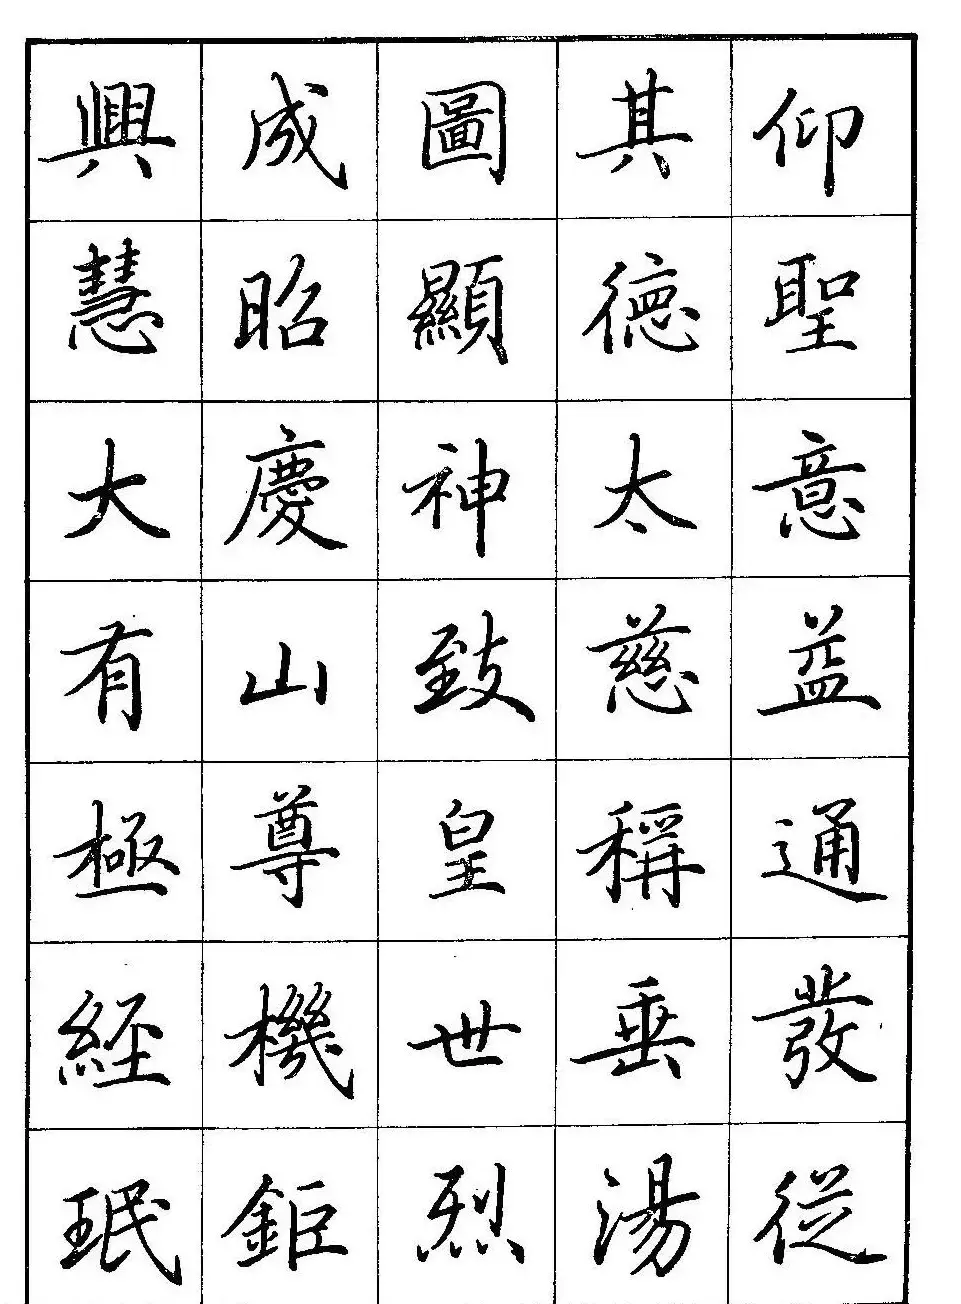 仰聖意益通發從
其德太慈稱垂湯
圖顯神致皇世烈
成昭慶山尊機鉅
興慧大有極經珉